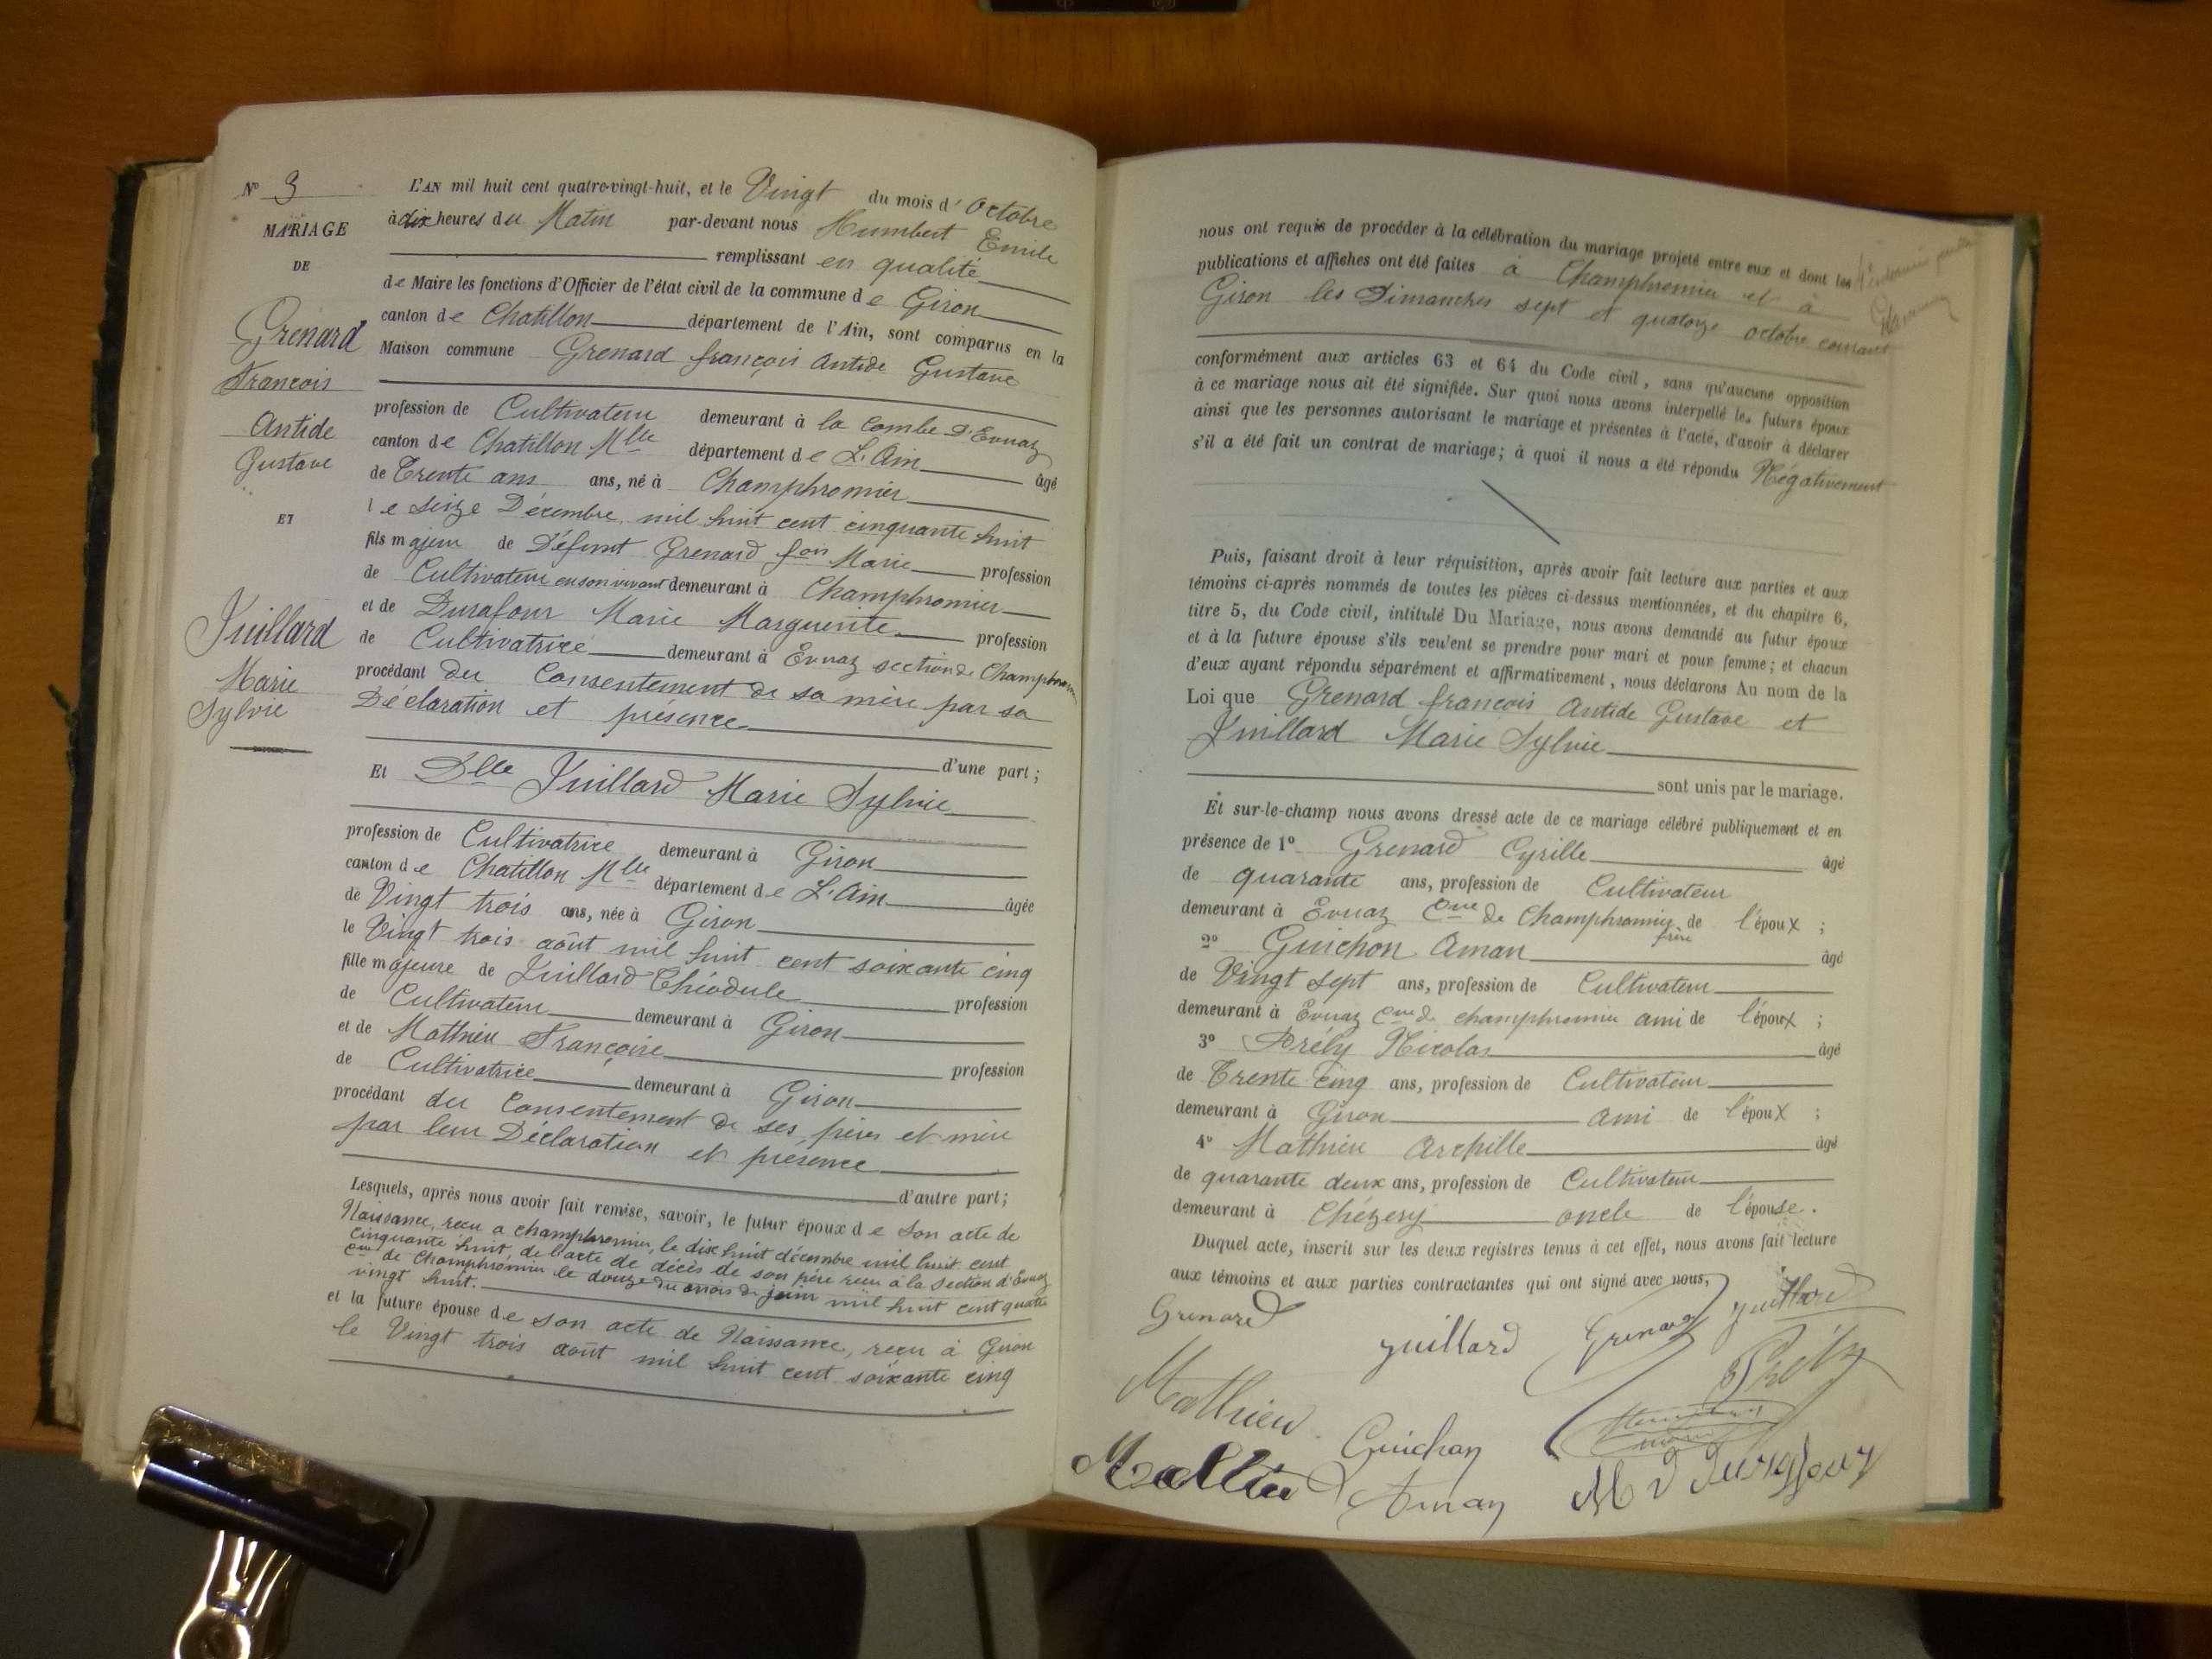 Nº 3
MARIAGE
DE
Grenard
François
Antide
Gustave
ET
Juillard
Marie
Sylvie
L'AN mil huit cent quatre-vingt-huit, et le Vingt du mois d'Octobre
à dix heures du Matin par-devant nous Humbert Emile
remplissant en qualité
de Maire les fonctions d'Officier de l'état civil de la commune de Giron
canton de Chatillon département de l'Ain, sont comparus en la
Maison commune Grenard françois Antide Gustave
profession de Cultivateur demeurant à la Combe d'Evuaz
canton de Chatillon Mlle département de L'Ain âgé
de Trente ans ans, né à Champfromier
le seize Décembre mil huit cent cinquante huit
fils majeur de Défunt Grenard fois Marie profession
de Cultivateur en son vivant demeurant à Champfromier
et de Durafour Marie Marguerite profession
de Cultivatrice demeurant à Evuaz section de Champfromier
procédant du Consentement de sa mère par sa
Déclaration et présence
d'une part ;
Et Dlle Juillard Marie Sylvie
profession de Cultivatrice demeurant à Giron
canton de Chatillon Mlle département de L'Ain âgée
de Vingt trois ans, née à Giron
le Vingt trois août mil huit cent soixante cinq
fille majeure de Juillard Théodule profession
de Cultivateur demeurant à Giron
et de Mathieu Françoise profession
de Cultivatrice demeurant à Giron
procédant du Consentement de ses pères et mère
par leur Déclaration et présence
d'autre part ;
Lesquels, après nous avoir fait remise, savoir, le futur époux de son acte de
Naissance, reçu a champfromier, le dix huit décembre mil huit cent
cinquante huit, de l'acte de décès de son père reçu à la section d'Evuaz
Cne de Champfromier le douze du mois de juin mil huit cent quatre
vingt huit.
et la future épouse de son acte de Naissance, reçu à Giron
le Vingt trois août mil huit cent soixante cinq
nous ont requis de procéder à la célébration du mariage projeté entre eux et dont les
publications et affiches ont été faites à Champfromier et à
Giron les Dimanches sept et quatorze octobre courant
conformément aux articles 63 et 64 du Code civil, sans qu'aucune opposition
à ce mariage nous ait été signifiée. Sur quoi nous avons interpellé les futurs époux
ainsi que les personnes autorisant le mariage et présentes à l'acte, d'avoir à déclarer
s'il a été fait un contrat de mariage ; à quoi il nous a été répondu Négativement
Puis, faisant droit à leur réquisition, après avoir fait lecture aux parties et aux
témoins ci-après nommés de toutes les pièces ci-dessus mentionnées, et du chapitre 6,
titre 5, du Code civil, intitulé Du Mariage, nous avons demandé au futur époux
et à la future épouse s'ils veulent se prendre pour mari et pour femme ; et chacun
d'eux ayant répondu séparément et affirmativement, nous déclarons Au nom de la
Loi que Grenard françois Antide Gustave et
Juillard Marie Sylvie
sont unis par le mariage.
Et sur-le-champ nous avons dressé acte de ce mariage célébré publiquement et en
présence de 1º Grenard Cyrille âgé
de quarante ans, profession de Cultivateur
demeurant à Evuaz Cne de Champfromier frère de l'époux ;
2º Guichon Aman âgé
de Vingt sept ans, profession de Cultivateur
demeurant à Evuaz Cne de champfromier ami de l'époux ;
3º Prély Nicolas âgé
de Trente cinq ans, profession de Cultivateur
demeurant à Giron ami de l'époux ;
4º Mathieu Archille âgé
de quarante deux ans, profession de Cultivateur
demeurant à Chézery oncle de l'épouse.
Duquel acte, inscrit sur les deux registres tenus à cet effet, nous avons fait lecture
aux témoins et aux parties contractantes qui ont signé avec nous,
Grenard juillard Grenard juillard
Mathieu Prély
Guichon
Mathieu Aman